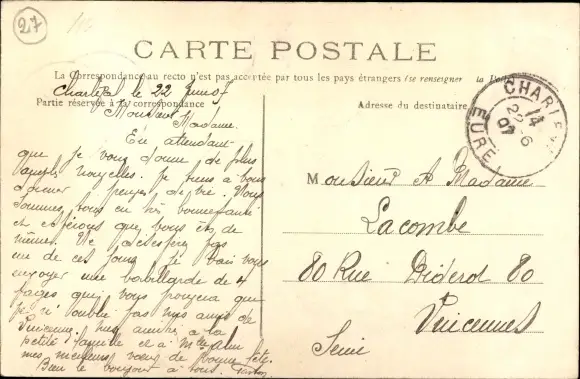 27
CARTE POSTALE
La Correspondance au recto n'est pas acceptée par tous les pays étrangers (se renseigner la Poste
Partie réservée à la correspondance
Adresse du destinataire
CHARLEV
14
22-6
07
EURE
le 22 Juin 07
Monsieur
Madame.
En attendant
que je vous donne de plus
amples nouvelles. je tiens à vous
donner de vie. Nous
sommes tous en très bonne santé
et espérons que vous êtes de
même. Ne pas
un de ces jours je vais vous
envoyer une babillarde de 4
pages qui vous prouvera que
je n'oublie pas mes amis de
Vincennes. mes à la
petite famille et à Mme
mes meilleurs vœux de bonne fête.
Bien le bonjour à tous.
Monsieur & Madame
Lacombe
80 Rue Diderot 80
Vincennes
Seine